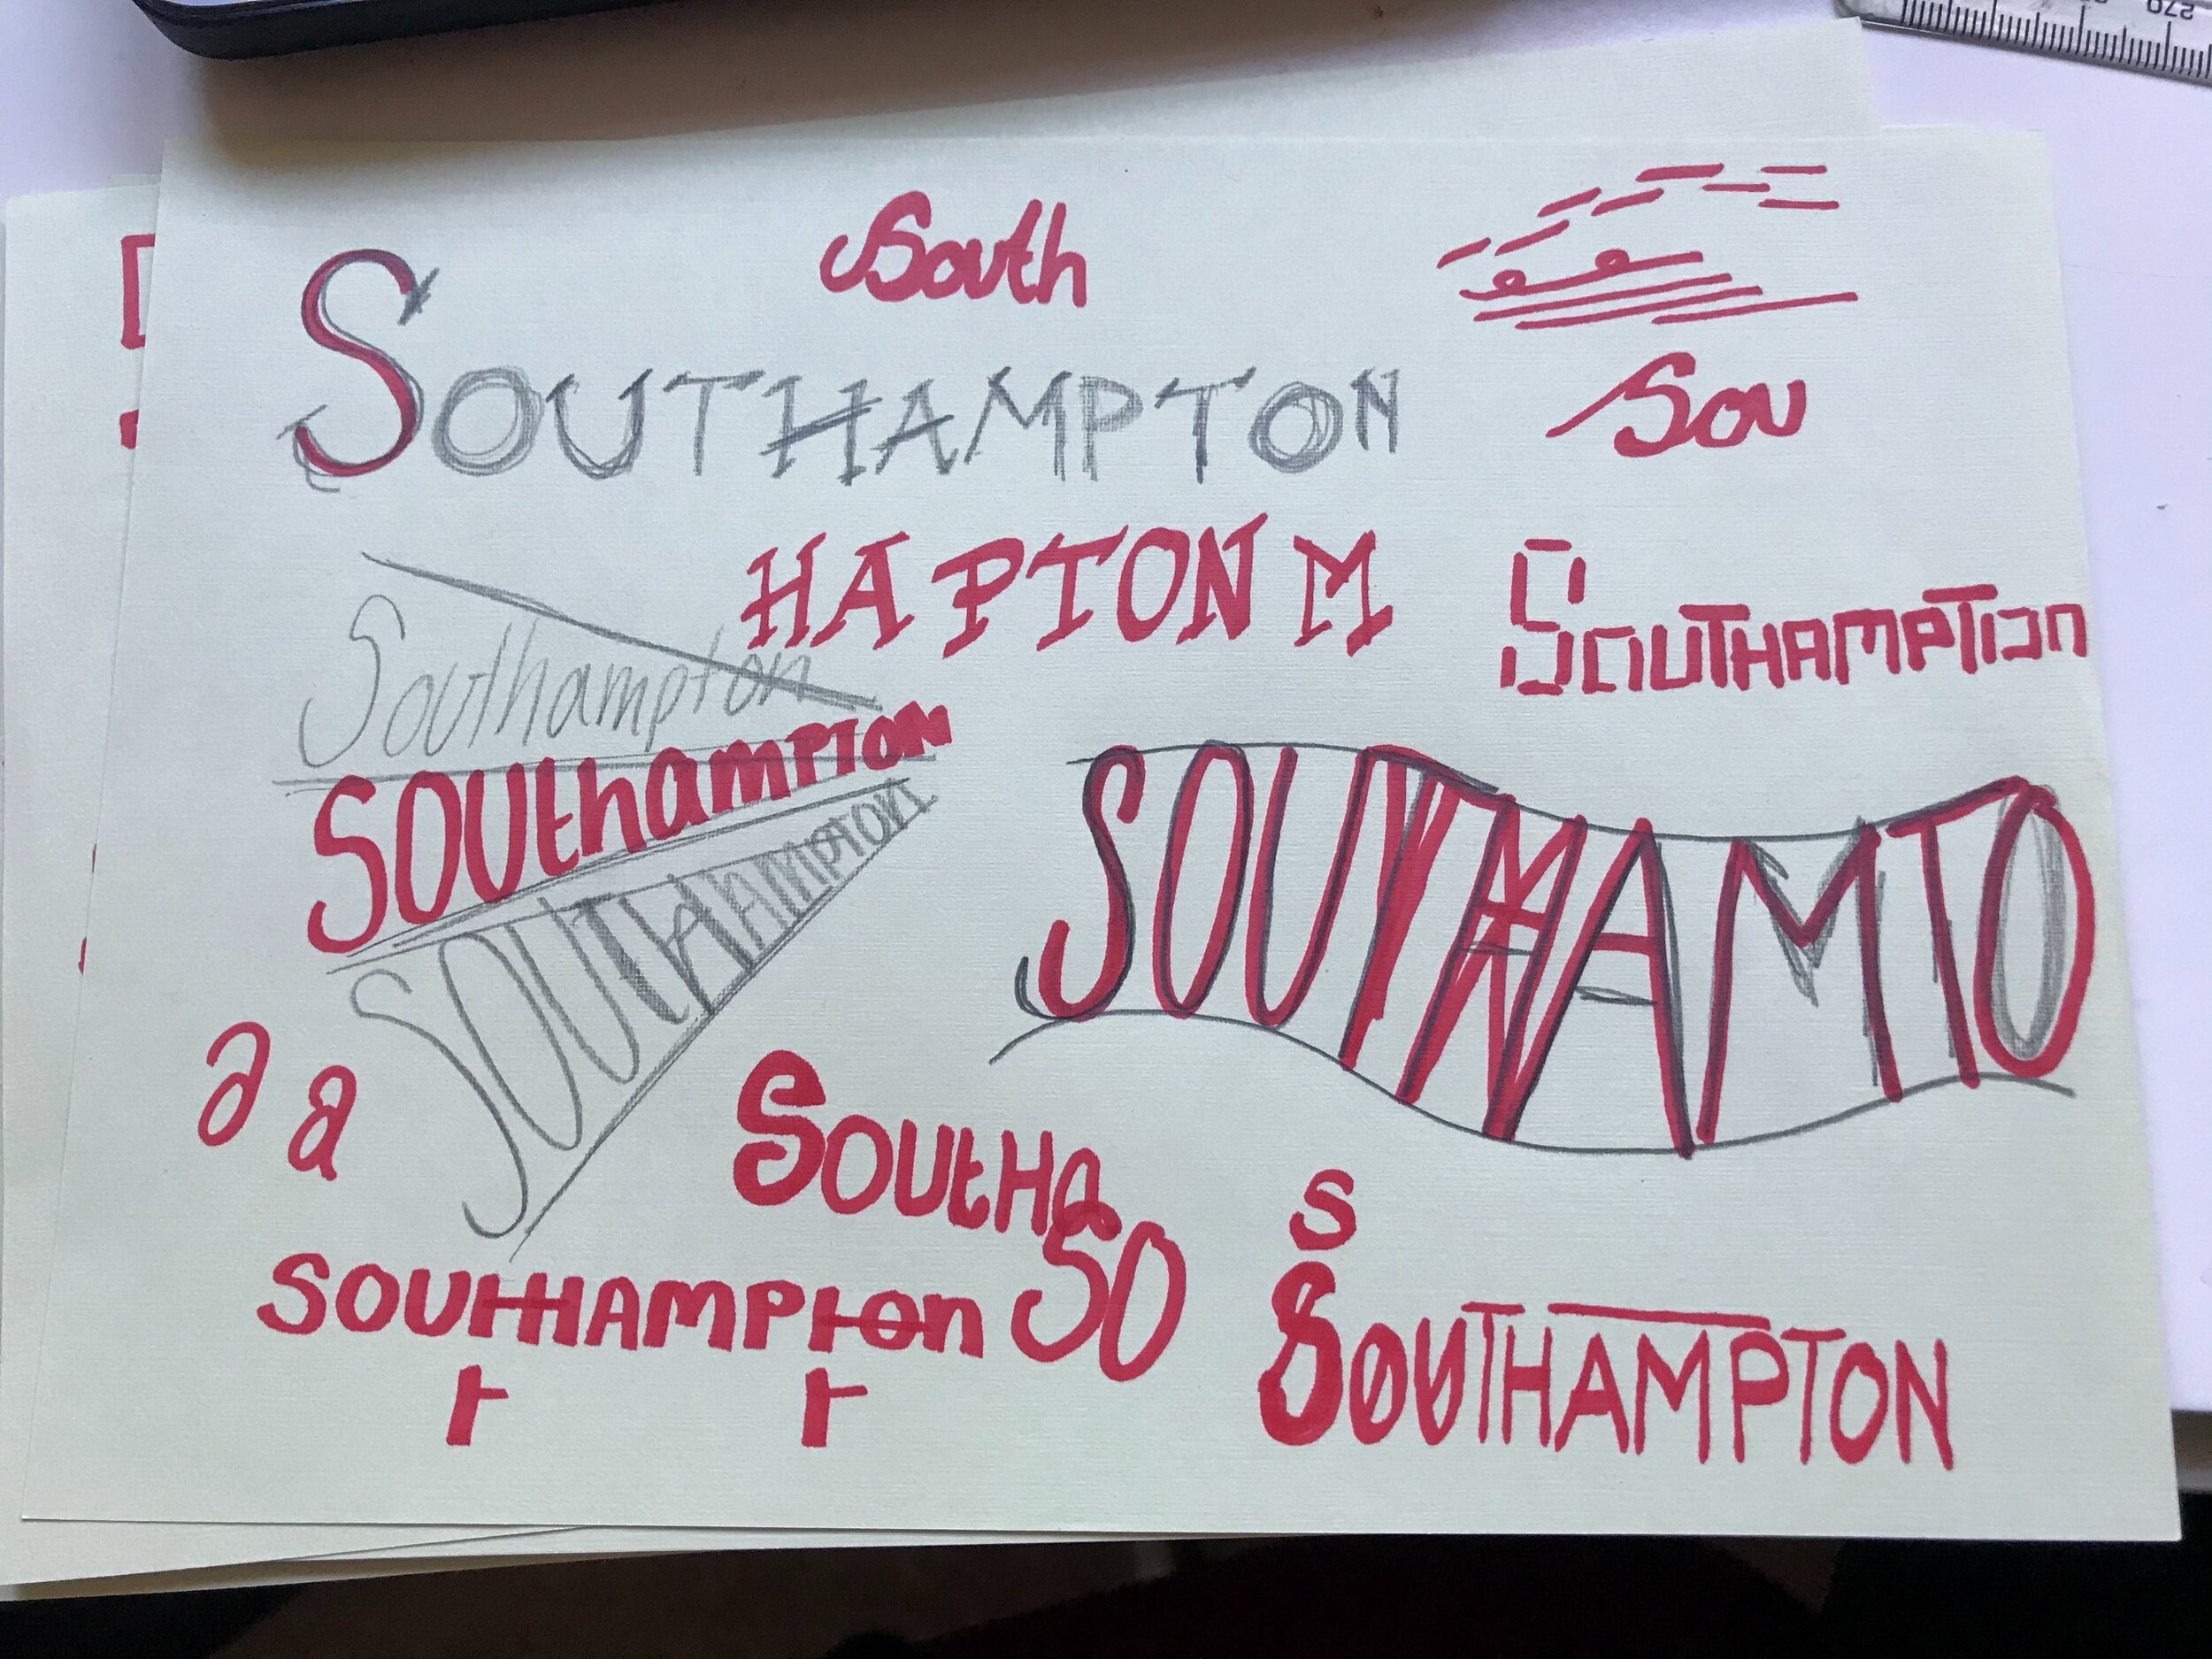 270
South
SOUTHAMPTON
Sou
HA PTON M
SOUTHAMPTION
Southampton
SOUthamPTON
SOUTHAMPTON
SOUTHAMTO
a a
SOUtHa
SO
S
SOUTHAMPTON
SOUTHAMPTON
t t